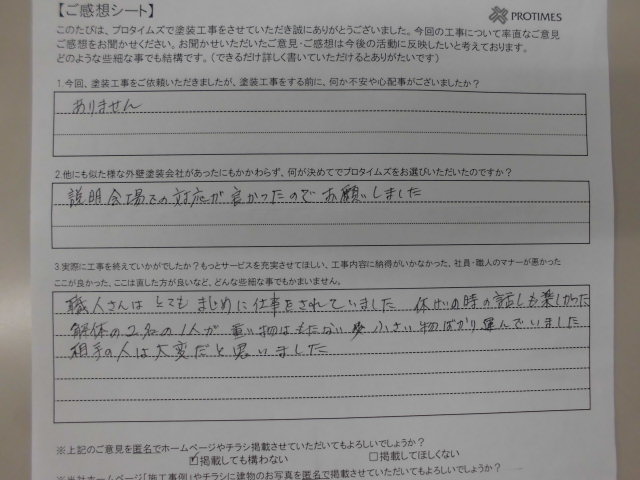 【ご感想シート】
PROTIMES
このたびは、プロタイムズで塗装工事をさせていただき誠にありがとうございました。今回の工事について率直なご意見
ご感想をお聞かせください。お聞かせいただいたご意見・ご感想は今後の活動に反映したいと考えております。
どのような些細な事でも結構です。（できるだけ詳しく書いていただけるとありがたいです）
1.今回、塗装工事をご依頼いただきましたが、塗装工事をする前に、何か不安や心配事がございましたか？
ありません
2.他にも似た様な外壁塗装会社があったにもかかわらず、何が決めてでプロタイムズをお選びいただいたのですか？
説明会場での対応が良かったので お願いしました
3.実際に工事を終えていかがでしたか？もっとサービを充実させてほしい、工事内容に納得がいかなかった、社員・職人のマナーが悪かった
ここが良かった、ここは直した方が良いなど、どんな些細な事でもかまいません。
職人さんは とても まじめに仕事をされていました 休けいの時の話しも楽しかった
解体の2名の1人が 重い物はもたない 小さい物ばかり運んでいました
相手の人は大変だと思いました
※上記のご意見を匿名でホームページやチラシ掲載させていただいてもよろしいでしょうか？
☑掲載しても構わない □掲載してほしくない
※当社ホームページ「施工事例」やチラシに建物のお写真を匿名で掲載させていただいてもよろしいでしょうか？